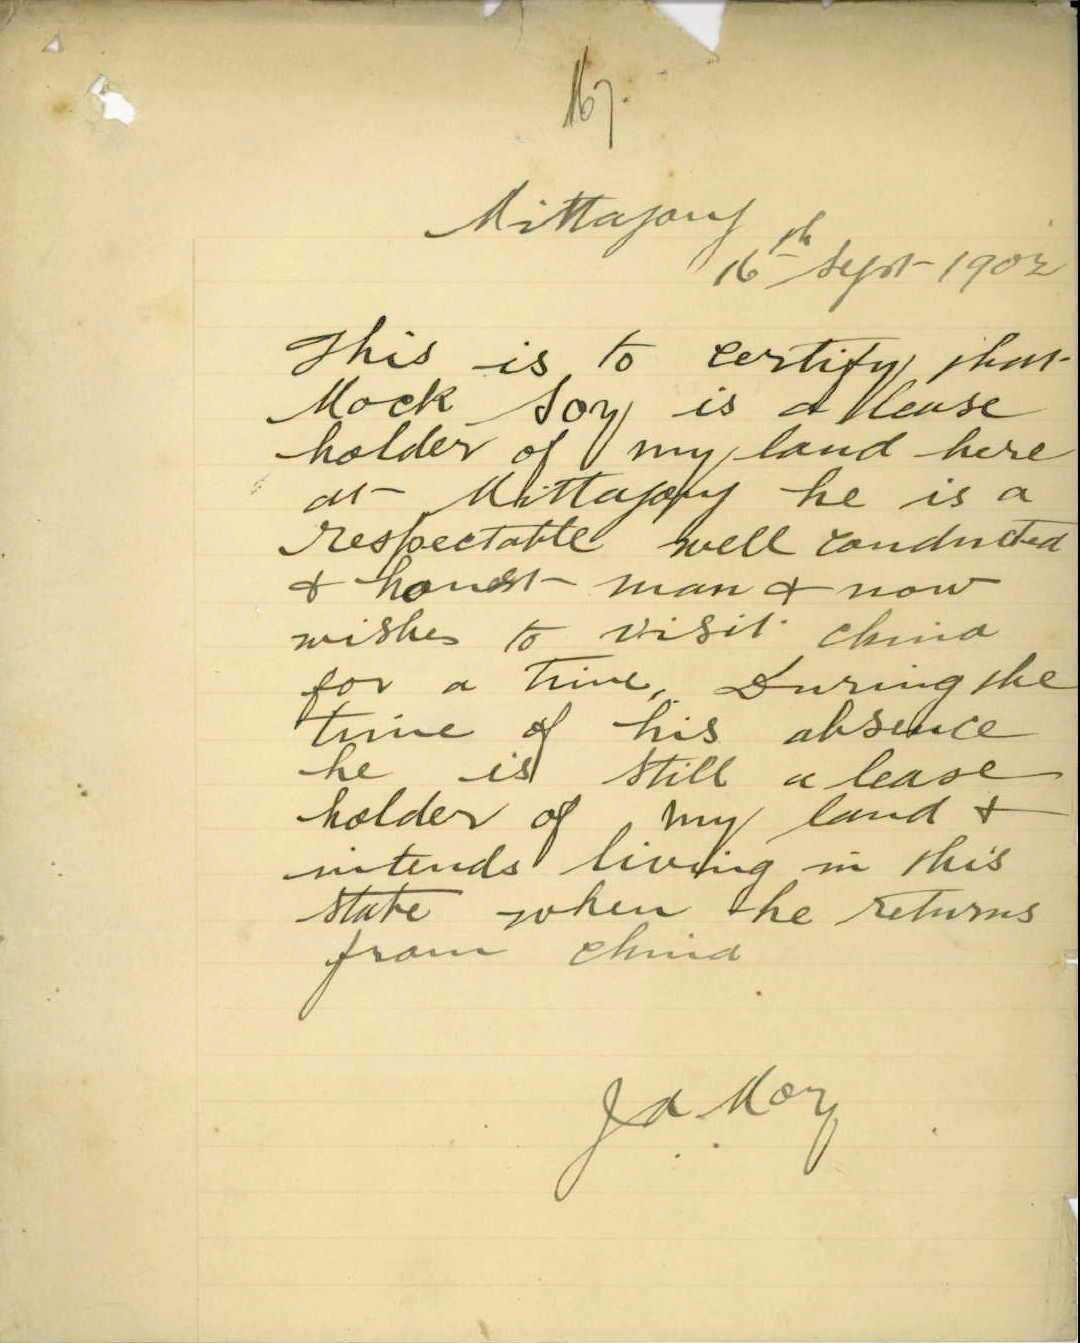 167.
Mittagong
16th Sept 1902
This is to certify that
Mock Soy is a lease
holder of my land here
at Mittagong he is a
respectable well conducted
& honest man & now
wishes to visit China
for a time, During the
time of his absence
he is still a lease
holder of my land &
intends living in this
state when he returns
from China